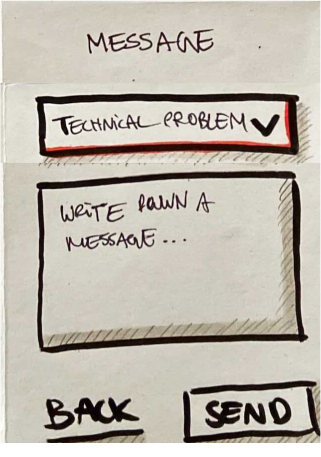 MESSAGE
TECHNICAL PROBLEM
WRITE DOWN A
MESSAGE...
BACK
SEND